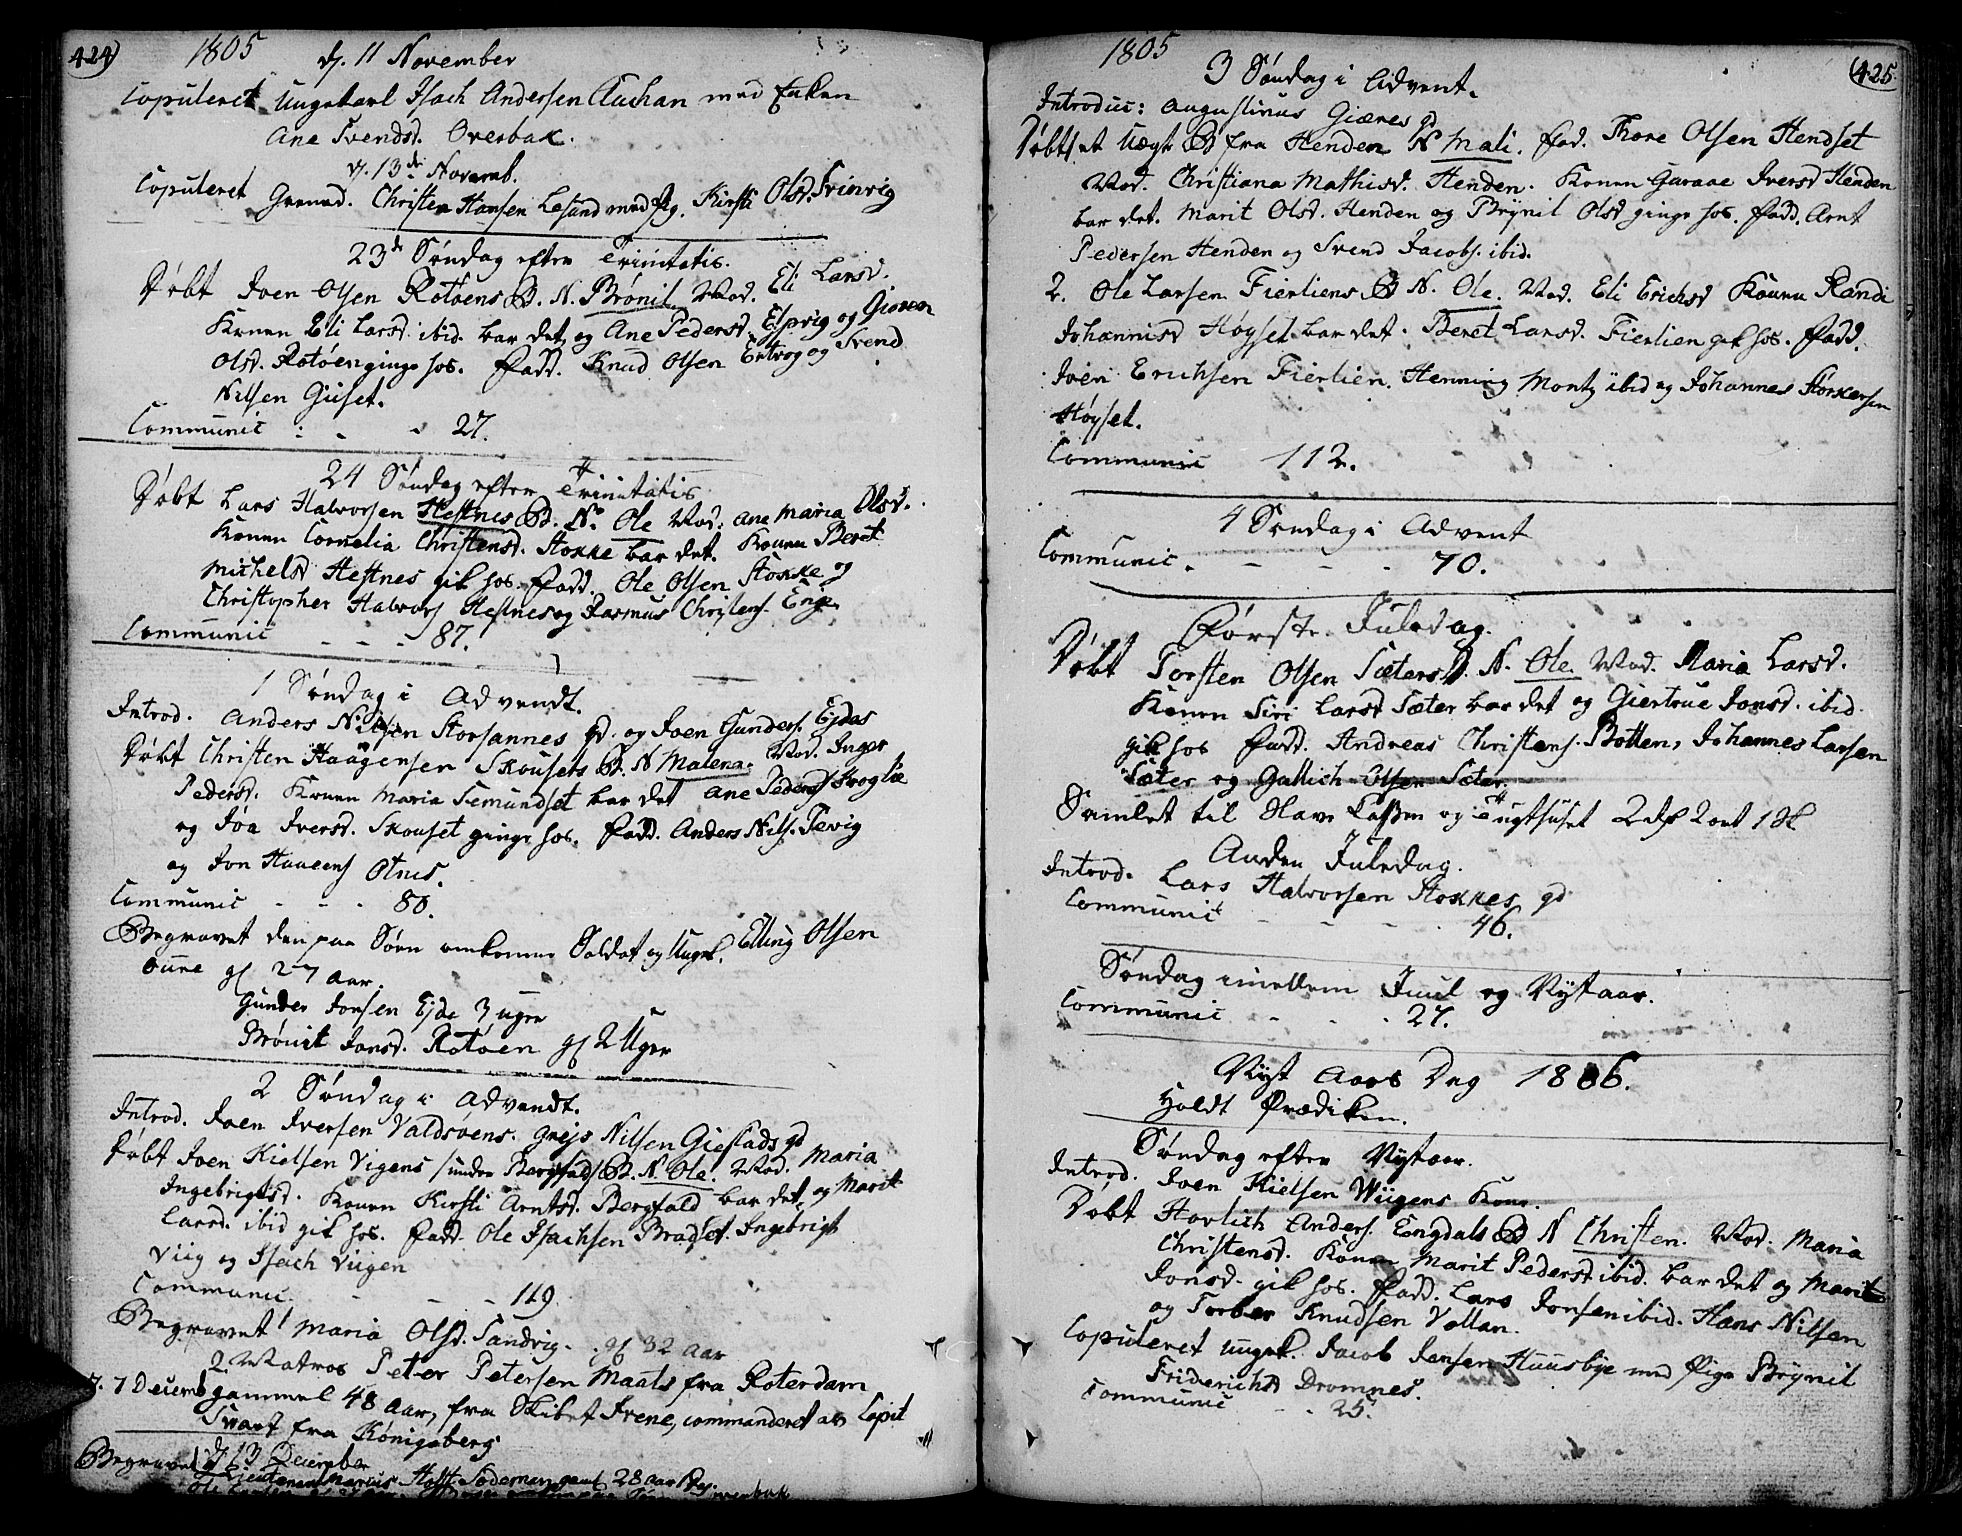 424) 1805
d. 11 November
Copuleret Ungekarl Isach Andersen med Enken
Ane Svendsd. Overbak.
d. 13de Novemb.
Copuleret Christen Hansen med Pig. Kirsti Olsd.
23de Søndag efter Trinitatis.
Døbt Joen Olsen Rotøens B. N. Brønil. Mod. Eli Larsd.
Konen Eli Larsd. ibid. bar det, og Ane Pedersd. Espvig og
Olsd. Rotøen ginge hos. Fadd. Knud Olsen Ertvog og Svend
Nilsen Giset.
Communic : - - 27.
24 Søndag efter Trinitatis
Døbt Lars Halvorsen Hestnes B. N. Ole Mod. Ane Maria Olsd.
Konen Cornelia Christensd. Stokke bar det. Konen Beret
Michelsd Hestnes gik hos. Fadd. Ole Olsen Stokke og
Christopher Halvors Hestnes og Rasmus Christens. Enge.
Communic - - - 87.
1 Søndag i Advendt.
Introd. Anders Nilsen Storsannes qd. og Joen Gunders. Ejdes
Døbt Christen Haagensen Skousets B. N Malena. Mod. Inger
Pedersd. Konen Maria Semundset bar det Ane Pedersd
og Joa Iversd. Skouset ginge hos. Fadd. Anders Nils. Tevig
og Jon Otnes.
Communic - - . 80.
Begravet den paa Søen omkomne Soldat og Ungk. Elling Olsen
Oure gl 27 Aar.
Gunder Jonsen Ejde 3 uger
Brønil Jonsd. Rotøen gl 2 Uger
2 Søndag i Advendt.
Introd. Joen Iversen Valdsøens. Nilsen qd
Døbt Joen Kielsen Vigens /under Bergfald/ B. N. Ole. Mod. Maria
Ingebrigtsd. Konen Kirsti Arntsd. Bergfald bar det, og Marit
Larsd. ibid gik hos. Fadd. Ole Isachsen Bradset. Ingebrigt
Viig og Isach Viigen
Communic. - - - 119
Begravet 1 Maria Olsd. Sandvig. gl 32 Aar
2 Matros Peter Petersen Maats fra Roterdam
d. 7 Decemb gammel 48 Aar, fra Skibet Irene, commanderet av Capit
Svart fra Königsberg
d 13 December
Begravet Lieutenant Marcus Holst Söderman gaml 28 Aar

1805 (425
3 Søndag i Advent.
Introduc: Augustinus Giæres qd
Døbt et Uægt. B fra Henden N Mali. Fad. Tore Olsen Hendset
Mod. Christiana Mathisd. Henden. Konen Guraae Iversd Henden
bar det. Marit Olsd. Henden og Brÿnil Olsd ginge hos. Fadd. Arnt
Pedersen Henden og Svend Jacobs. ibid.
2. Ole Larsen Fierliens B N. Ole. Mod. Eli Erichsd Konen Randi
Johannisd Høyset bar det. Beret Larsd. Fierlien gik hos. Fadd.
Joen Erichsen Fierlien. Henning Montz ibid og Johannes Storkersen
Høyset.
Communic 112.
4 Søndag i Advent
Communic. - - - 70.
Første Juledag.
Døbt Torsten Olsen Sæters B. N. Ole. Mod. Maria Larsd.
Konen Siri Larsd Sæter bar det og Giertrue Jonsd. ibid.
gik hos Fadd. Andreas Christens. Botten, Johannes Larsen
Sæter og Gullich Olsen Sæter.
Samlet til Have Cassen og Tugthuset 2 rdl 2 ort 1 sk
Anden Juledag.
Introd. Lars Halvorsen Stokkes qd
Communic - - - 46.
Søndag imellem Juul og Nÿtaar.
Communic - - - 27.
Nÿt Aars Dag 1806.
Holdt Prædiken.
Søndag efter Nÿtaar.
Introd. Joen Kielsen Wiigens Kone.
Døbt Havlich Anders. Engdals B N Christen. Mod. Maria
Christensd. Konen Marit Pedersd ibid. bar det og Marit
Jonsd. gik hos. Fadd. Lars Jonsen ibid. Hans Nilsen
og Torber Knudsen Vollan.
Copuleret Ungk. Jacob Jensen Huusbye med Pige Brÿnil
Friderichsd Dromnes.
Communic - - 25.